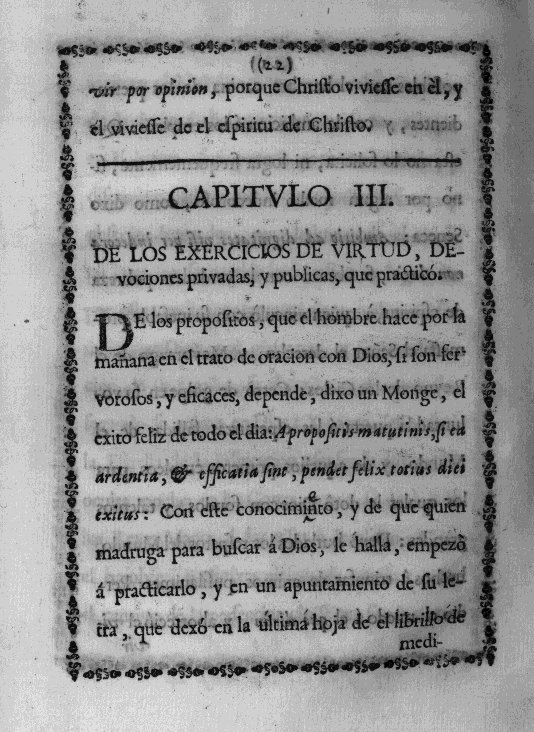 ((22)
vir por opinion, porque Christo viviesse en èl, y
el viviesse de el espiritu de Christo.
CAPITVLO III.
DE LOS EXERCICIOS DE VIRTUD, DE-
vociones privadas, y publicas, que practicó.
DE los propositos, que el hombre hace por la
mañana en el trato de oracion con Dios, si son fer-
vorosos, y eficaces, depende, dixo un Monge, el
exito feliz de todo el dia: A propositis matutinis, si ea
ardentia, & efficatia sint, pendet felix totius diei
exitus: Con este conocimi̭nto, y de que quien
e
madruga para buscar á Dios, le halla, empezò
á practicarlo, y en un apuntamiento de su le-
tra, que dexó en la ultima hoja de el librillo de
medi-